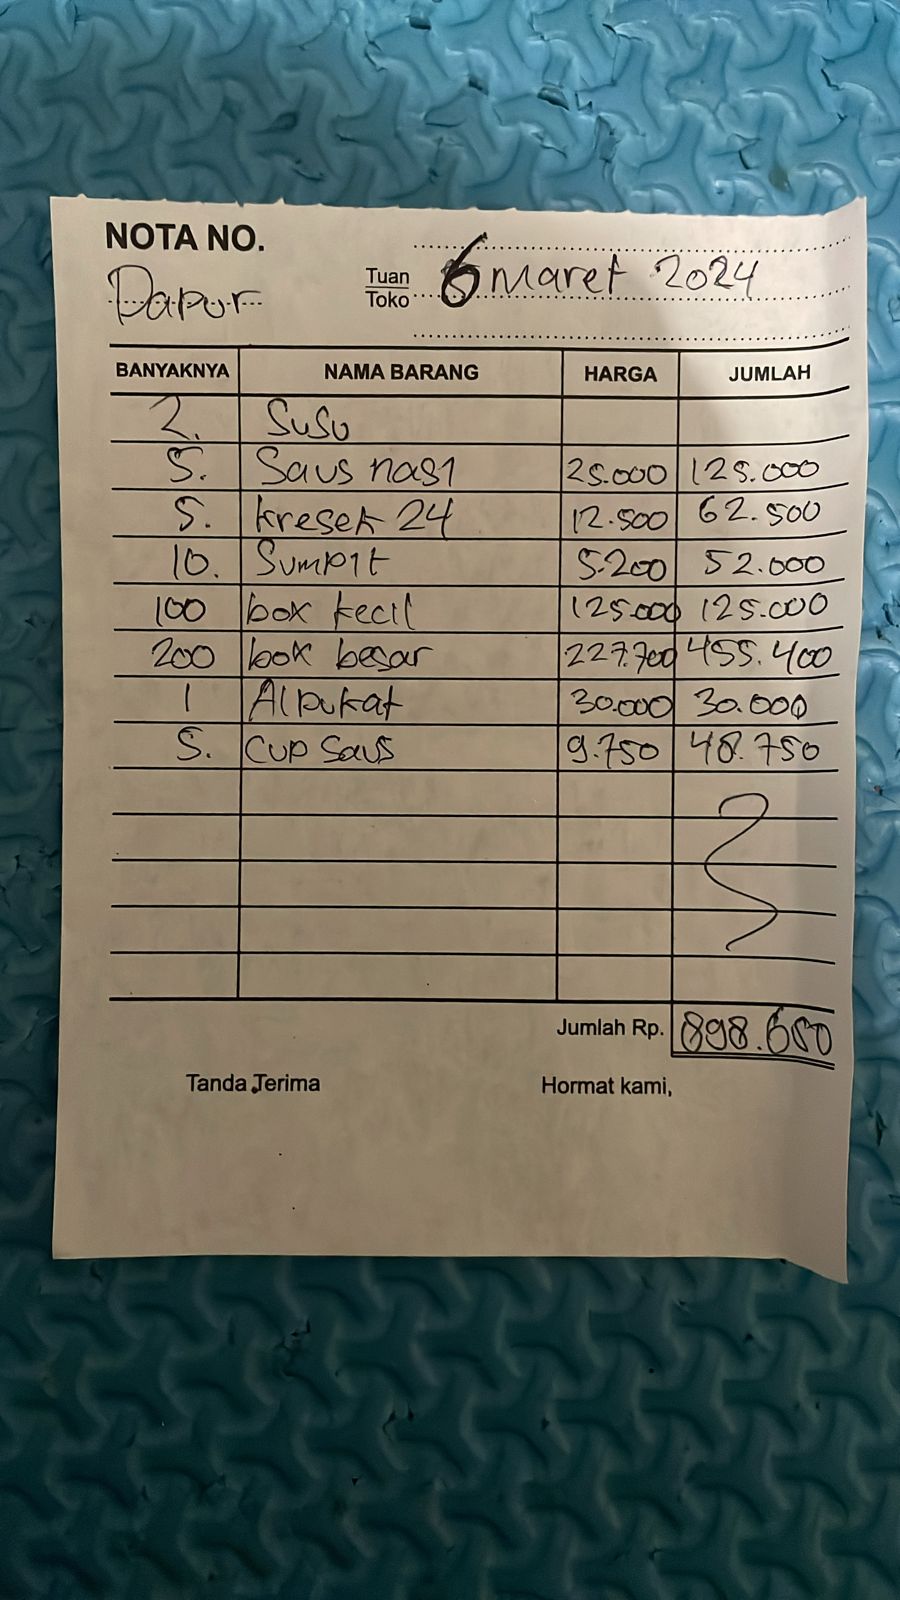 NOTA NO.
Dapur
Tuan
Toko
6 Maret 2024
BANYAKNYA NAMA BARANG HARGA JUMLAH
2. Susu
5. Saus nasi 25.000 125.000
5. kresek 24 12.500 62.500
10. Sumpit 5.200 52.000
100 box kecil 125.000 125.000
200 box besar 227.700 455.400
1 Alpukat 30.000 30.000
5. Cup Saus 9.750 48.750
Jumlah Rp. 898.650
Tanda Terima Hormat kami,